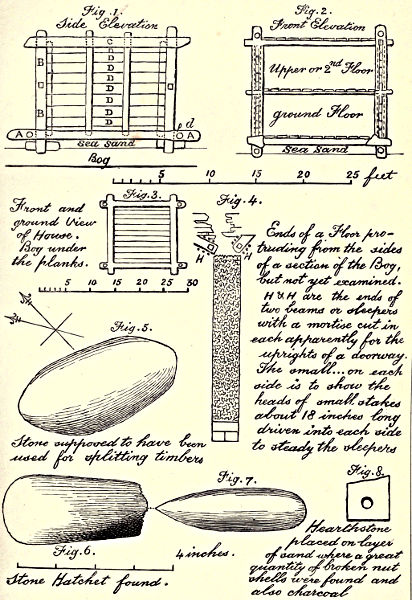 Fig. 1.
Side Elevation
C
D
D
D
D
D
D
D
B
B
d
A
A
Sea Sand
Bog
Fig. 2.
Front Elevation
Upper or 2nd Floor
ground Floor
Sea Sand
5
10
15
20
25
feet
Front and
ground View
of House.
Bog under
the planks.
Fig. 3.
5
10
15
20
25
30
Fig. 4.
H
H
Ends of a Floor pro-
truding from the sides
of a section of the Bog,
but not yet examined.
H & H are the ends of
two beams or sleepers
with a mortise cut in
each apparently for the
uprights of a doorway.
The small... on each
side is to show the
heads of small stakes
about 18 inches long
driven into each side
to steady the sleepers
Fig. 5.
Stone supposed to have been
used for splitting timbers
Fig. 7.
Fig. 6.
4 inches.
Stone Hatchet found.
Fig. 8.
Hearthstone
placed on layer
of sand where a great
quantity of broken nut
shells were found and
also charcoal